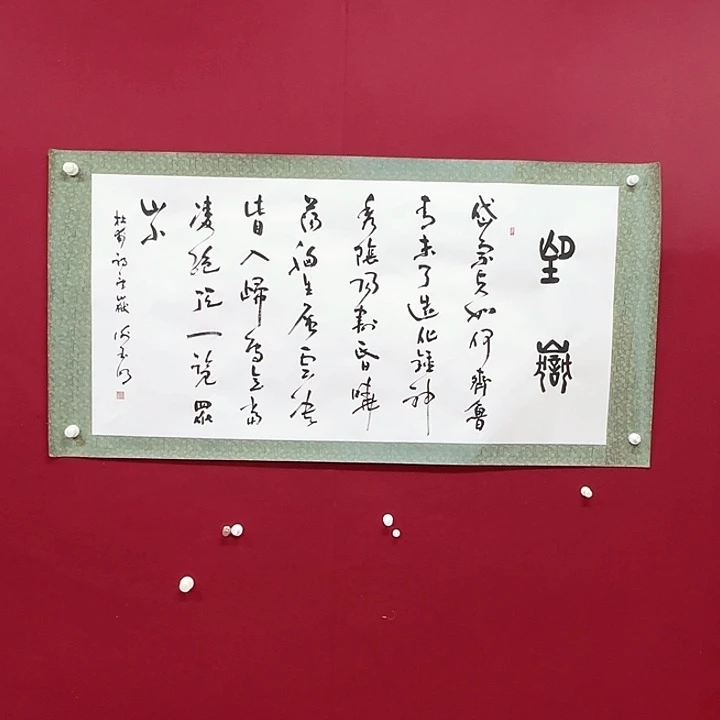 望嶽
岱宗夫如何齊魯
青未了造化鍾神
秀陰陽割昏曉
蕩胸生層雲決
眥入歸鳥會當
凌絕頂一覽眾
山小
杜甫詩望嶽